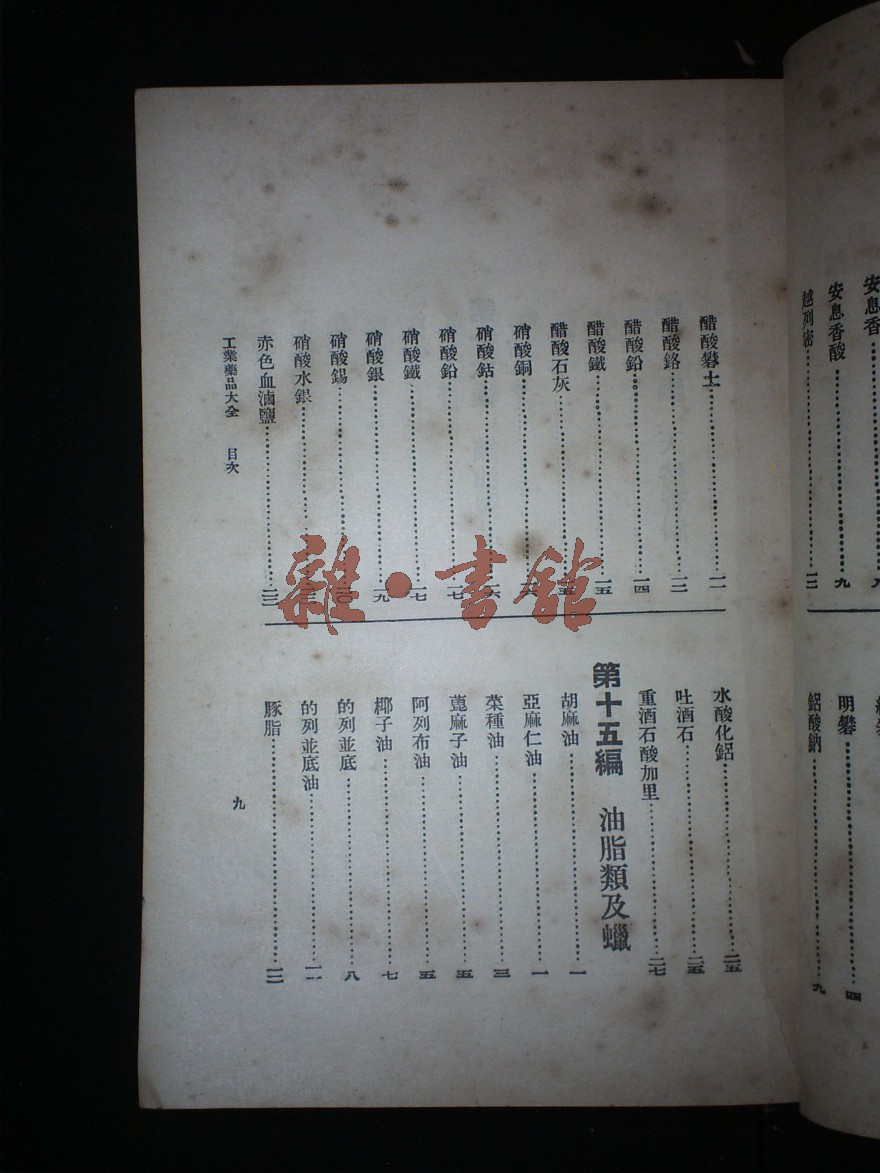 安息香
安息香酸……九
越列密……一二
明礬……四
鋁酸鈉……九
醋酸礬土……一一
醋酸鉻……一二
醋酸鉛……一四
醋酸鐵……一五
醋酸石灰……一五
硝酸銅……
硝酸鈷……一六
硝酸鉛……一七
硝酸鐵……一七
硝酸銀……一九
硝酸錫……二〇
硝酸水銀……
赤色血滷鹽……二三
水酸化鋁……二五
吐酒石……二五
重酒石酸加里……二七
第十五編 油脂類及蠟
胡麻油……一
亞麻仁油……一
菜種油……三
蓖麻子油……五
阿列布油……五
椰子油……七
的列並底……八
的列並底油……一一
豚脂……一二
工業藥品大全 目次
九
雜·書館